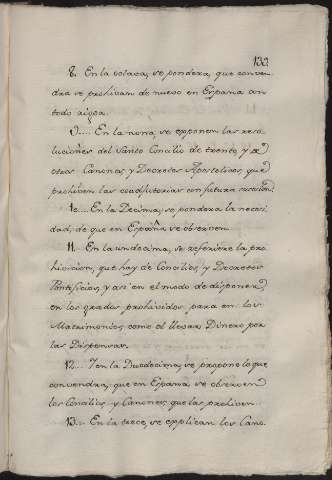 133
8. En la octaca, se pondera, que conven-
dra se prohivan de nuevo en España con
todo rigor.
9.... En la nona, se exponen las reso-
luciones del Santo Concilio de trento, y a
otros Canones, y Decretos Apostolicos, que
prohiven las coadjutorias con futura sucesion.
10.... En la Decima, se pondera la neces-
idad, de que en España se observen.
11. En la undecima, se refieren la pro-
hivicion, que hay de Concilios, y Decretos
Pontificios, y asi en el modo de dispensar
en los grados prohividos para en los
Matrimonios, como el llevar Dinero por
las Dispensas.
12.... Y en la Duodecima, se propone lo que
convendra, que en España se observen
los Concilios, y Canones, que las prohiven.
13.... En la trece, se explican los Cano-